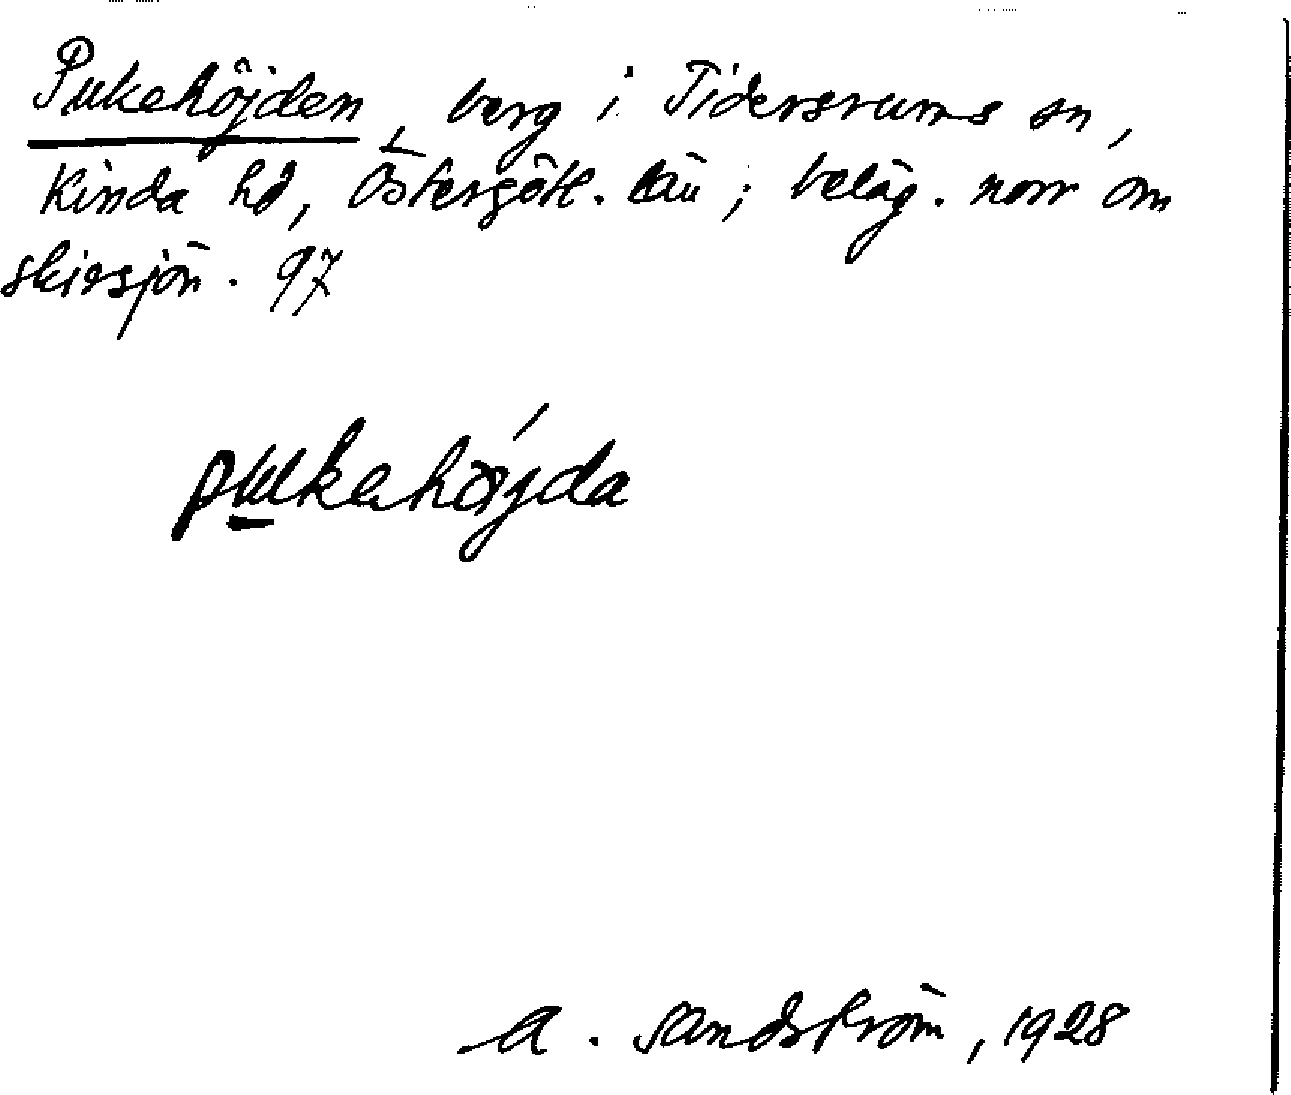 Pukehöjden, berg i Tidersrums sn,
Kinda hd, Östergötl. län; beläg. norr om
skirsjön. 97
pukehöjda
A. Sandström, 1928